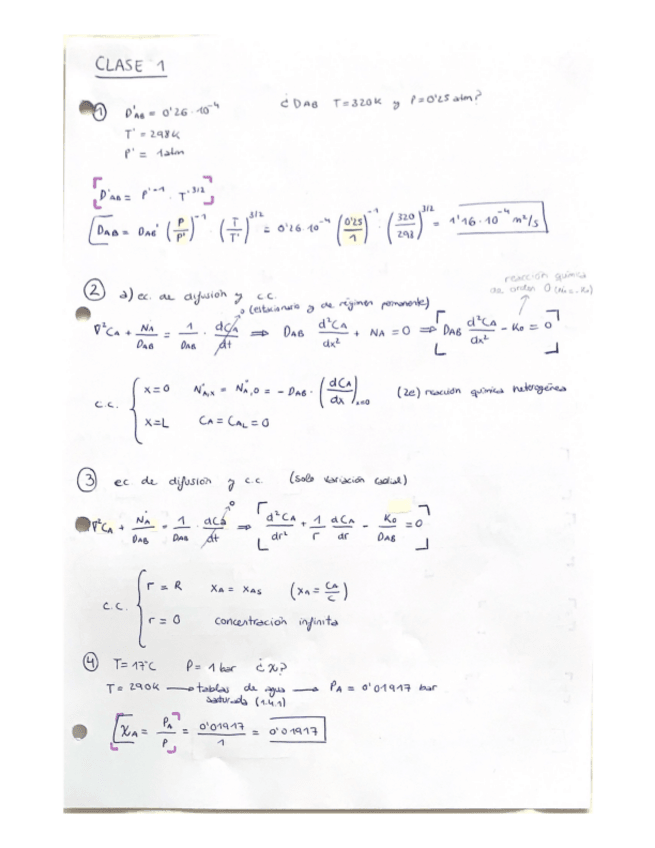 CLASE 1
① D'AB = 0'26·10⁻⁴ ¿DAB T=320K y P=0'25 atm?
T' = 298K
P' = 1atm
[D'AB = P'⁻¹ · T'³/²]
[DAB = DAB' (P/P')⁻¹ · (T/T')³/² = 0'26·10⁻⁴ (0'25/1)⁻¹ · (320/298)³/² = 1'16·10⁻⁴ m²/s
reacción química
de orden 0 (ṄA=-K₀)
② a) ec. de difusión y c.c.
0 (estacionario y de régimen permanente)
∇²CA + ṄA/DAB = 1/DAB · dCA/dt ⇒ DAB d²CA/dx² + ṄA = 0 ⇒ [DAB d²CA/dx² - K₀ = 0]
c.c. { x=0 N"A,x = N"A,0 = -DAB · (dCA/dx)x=0 (2e) reacción química heterogénea
x=L CA = CAL = 0
③ ec de difusión y c.c. (solo variación radial)
0
∇²CA + ṄA/DAB = 1/DAB · dCA/dt ⇒ [d²CA/dr² + 1/r dCA/dr - K₀/DAB = 0]
c.c. { r = R XA = XAS (XA = CA/C)
r = 0 concentración infinita
④ T= 17°C P= 1 bar ¿X?
T= 290K → tablas de agua → PA = 0'01917 bar
saturada (1.4.1)
[XA = PA/P = 0'01917/1 = 0'01917